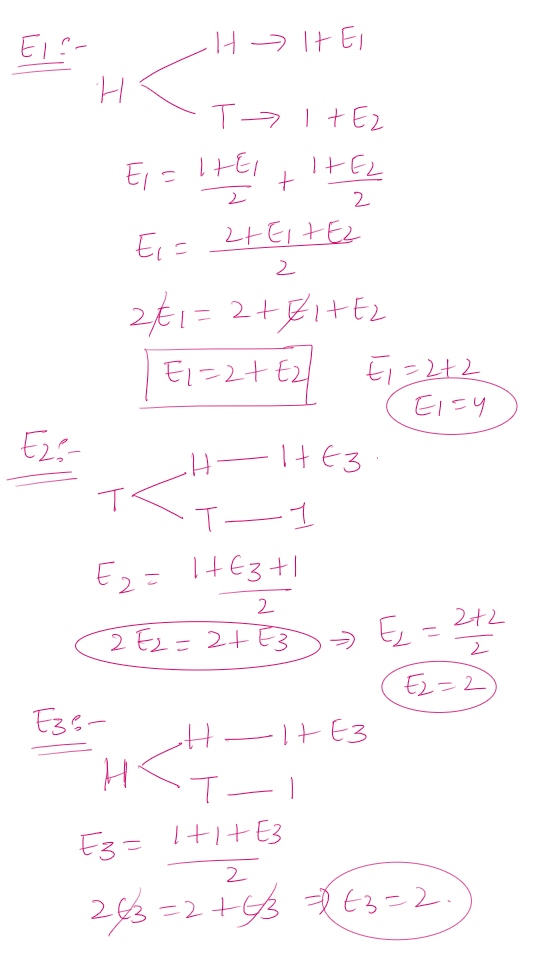 E1:-
H → 1+E1
H
T → 1+E2
E1 = 1+E1/2 + 1+E2/2
E1 = 2+E1+E2/2
2E1 = 2+E1+E2
E1=2+E2 E1=2+2
E1=4
E2:-
H — 1+E3
T
T — 1
E2 = 1+E3+1/2
2E2 = 2+E3 ⇒ E2 = 2+2/2
E2=2
E3:-
H — 1+E3
H
T — 1
E3 = 1+1+E3/2
2E3 = 2+E3 ⇒ E3=2.